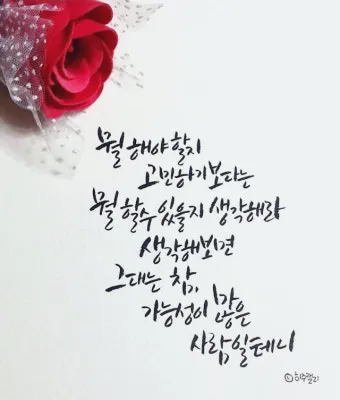 뭘 해야 할지
고민하기보다는
뭘 할수 있을지 생각해라
생각해보면
그대는 참,
가능성이 많은
사람일테니